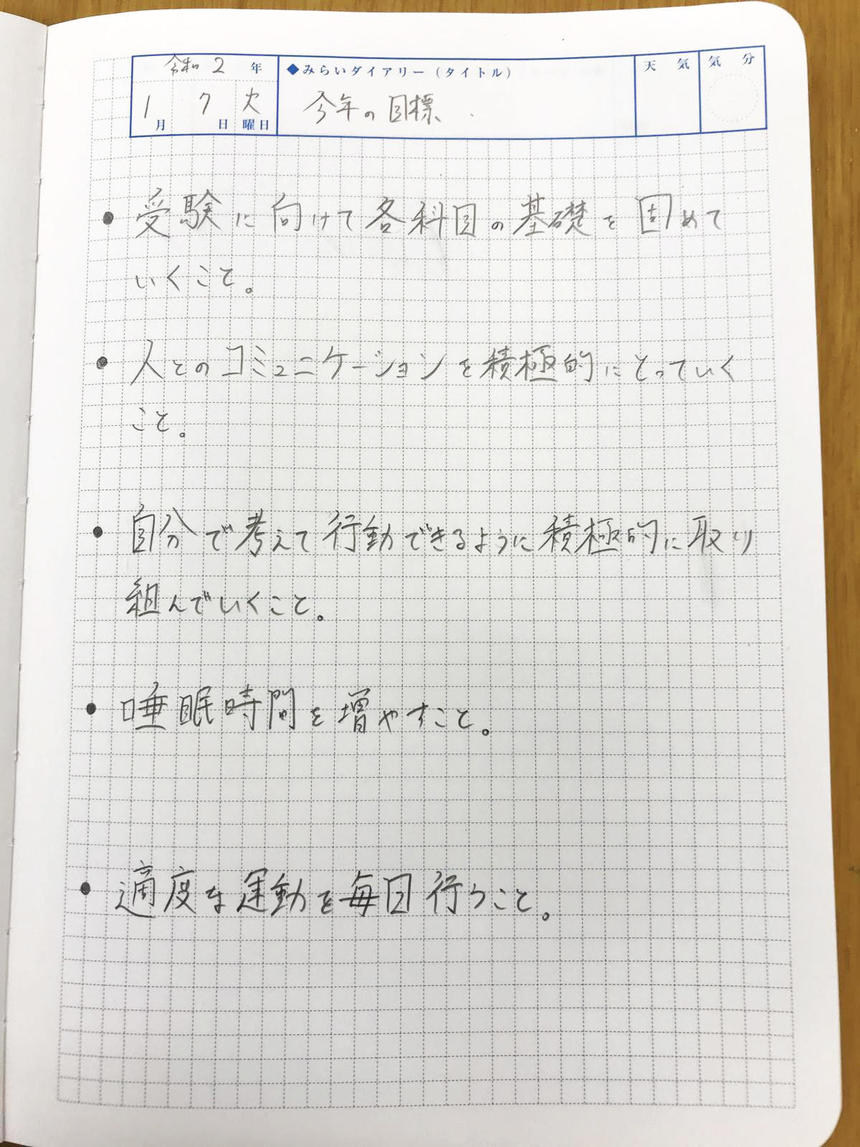 令和2年 ◆みらいダイアリー(タイトル) 天気 気分
1月7日火曜日 今年の目標
• 受験に向けて各科目の基礎を固めて
いくこと。
• 人とのコミュニケーションを積極的にとっていく
こと。
• 自分で考えて行動できるように積極的に取り
組んでいくこと。
• 睡眠時間を増やすこと。
• 適度な運動を毎日行うこと。